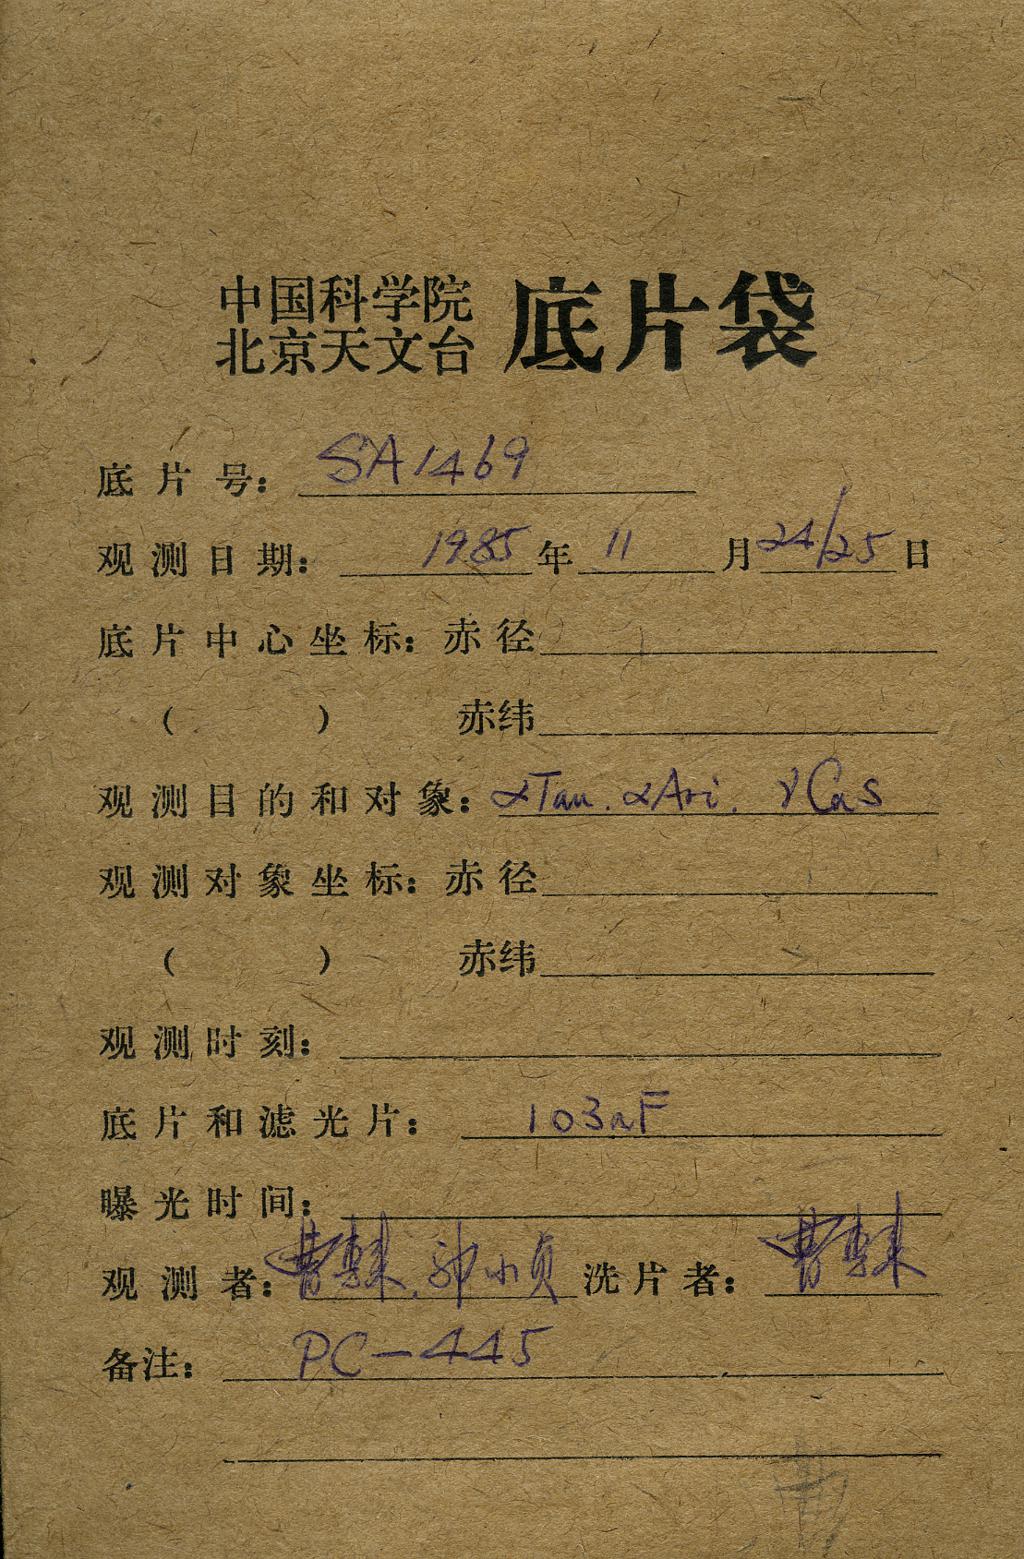 中国科学院
北京天文台 底片袋
底片号: SA1469
观测日期: 1985年 11月24/25日
底片中心坐标: 赤径
( ) 赤纬
观测目的和对象: αTau. αAri. γCas
观测对象坐标: 赤径
( ) 赤纬
观测时刻:
底片和滤光片: 103aF
曝光时间:
观测者: 洗片者:
备注: PC-445